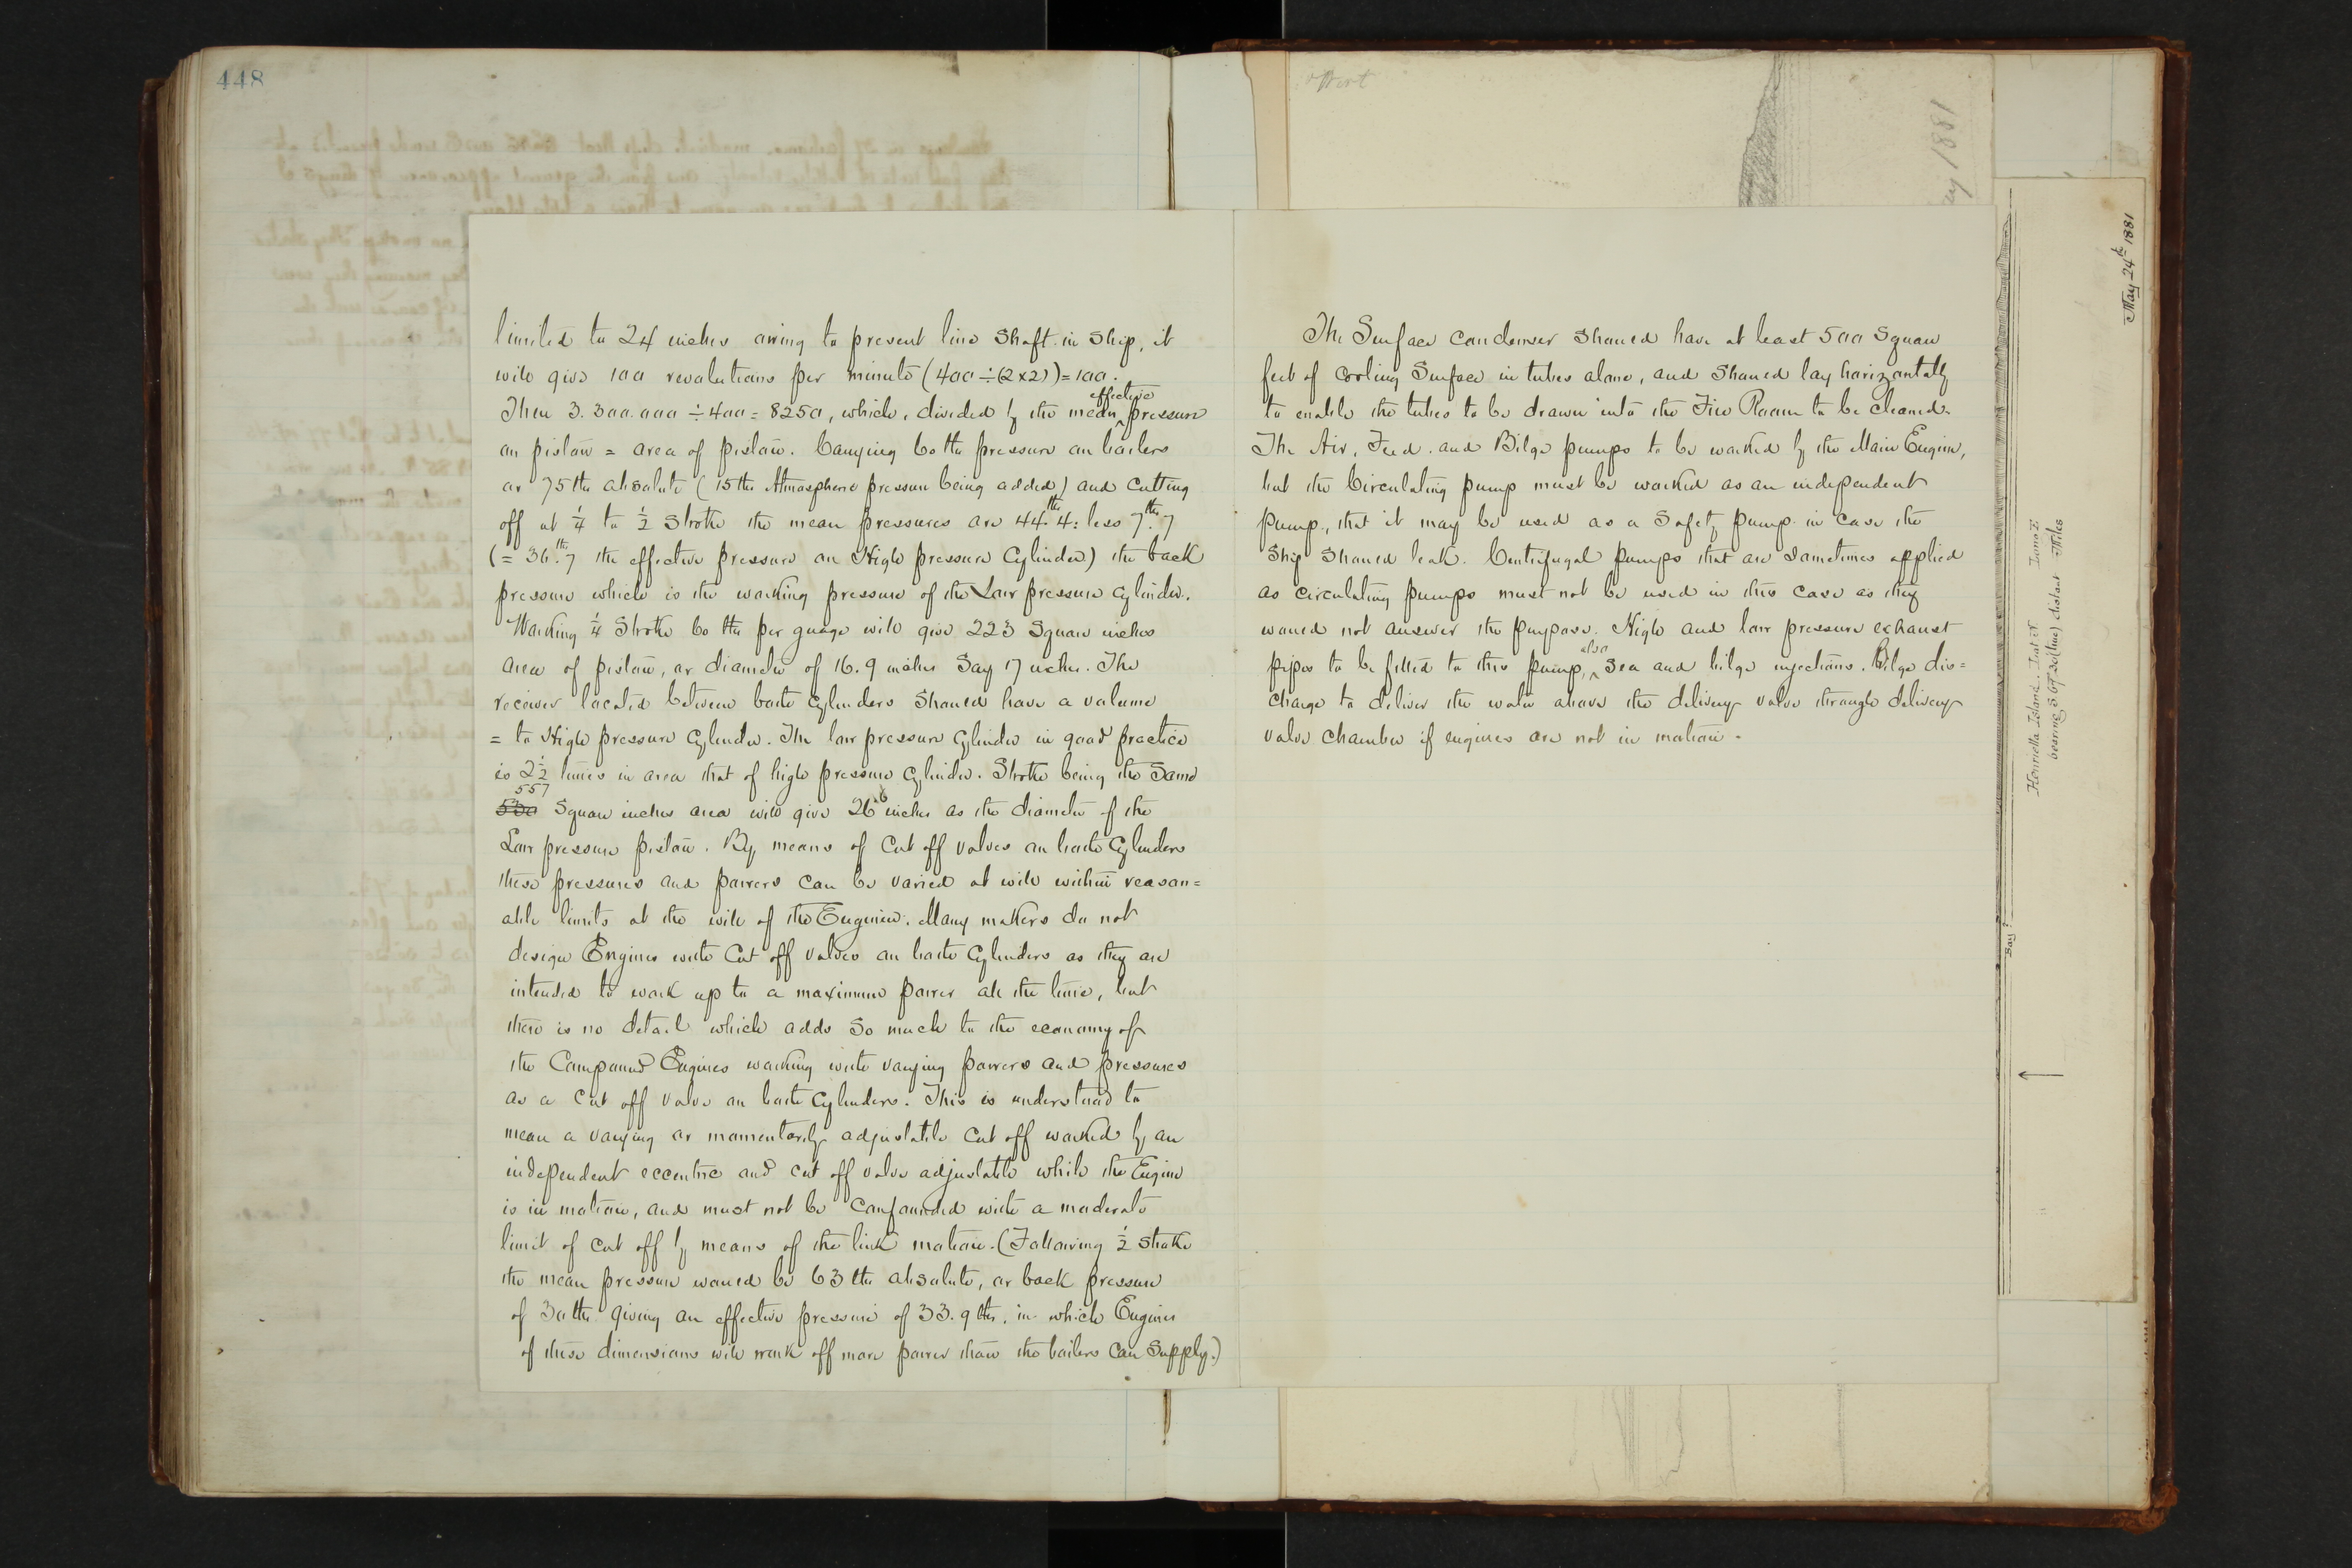 448
limited to 24 inches owing to present line Shaft in Ship, it
will give 100 revolutions per minute (400 ÷ (2 x 2)) = 100.
Then 3.300.000 ÷ 400 = 8250, which, divided by the mean effective pressure
on piston = area of piston. Carrying 60 lbs pressure on boilers
or 75 lbs absolute (15 lbs Atmosphere pressure being added) and Cutting
off at ¼ to ½ Stroke the mean pressures are 44 lbs 4: less 7 lbs 7
(= 36 lbs. 7 the effective pressure on High pressure Cylinder) the back
pressure which is the working pressure of the Low pressure Cylinder.
Working ¼ Stroke 60 lbs per guage will give 223 Square inches
Area of piston, or diameter of 16.9 inches Say 17 inches. The
receiver located between both Cylinders Should have a volume
= to High pressure Cylinder. The low pressure Cylinder in good practice
is 2½ times in area that of high pressure Cylinder. Stroke being the Same
557
Square inches area will give 26 6 inches as the diameter of the
Low pressure piston. By means of Cut off Valves on both Cylinders
these pressures and powers Can be varied at will within reason=
able limits at the will of the Engineer. Many makers do not
design Engines with Cut off Valves on both Cylinders as they are
intended to work up to a maximum power all the time, but
there is no detail which adds So much to the economy of
the Compound Engines working with varying powers and pressures
as a Cut off Valve on both Cylinders. This is understood to
mean a varying or momentarily adjustable Cut off worked by an
independent eccentric and cut off valve adjustable while the Engine
is in motion, and must not be Confounded with a moderate
limit of Cut off by means of the link motion. (Following ½ Stroke
the mean pressure would be 63 lbs absolute, or back pressure
of 30 lbs giving an effective pressure of 33.9 lbs, in which Engines
of these dimensions will work off more power than the boilers Can Supply.)
The Surface Condenser Should have at least 500 Square
feet of Cooling Surface in tubes alone, and Should lay horizontally
to enable the tubes to be drawn into the Fire Room to be Cleaned.
The Air, Feed. and Bilge pumps to be worked by the Main Engine,
but the Circulating pump must be worked as an independent
pump, that it may be used as a Safety pump in Case the
Ship Should leak. Centrifugal pumps that are Sometimes applied
as Circulating pumps must not be used in this Case as they
would not answer the purpose. High and low pressure exhaust
pipes to be fitted to this pump, also Sea and bilge injections. Bilge dis=
charge to deliver the water above the delivery valve through delivery
Valve Chamber if engines are not in motion.
1881
May 24th 1881
Henrietta Island
Miles